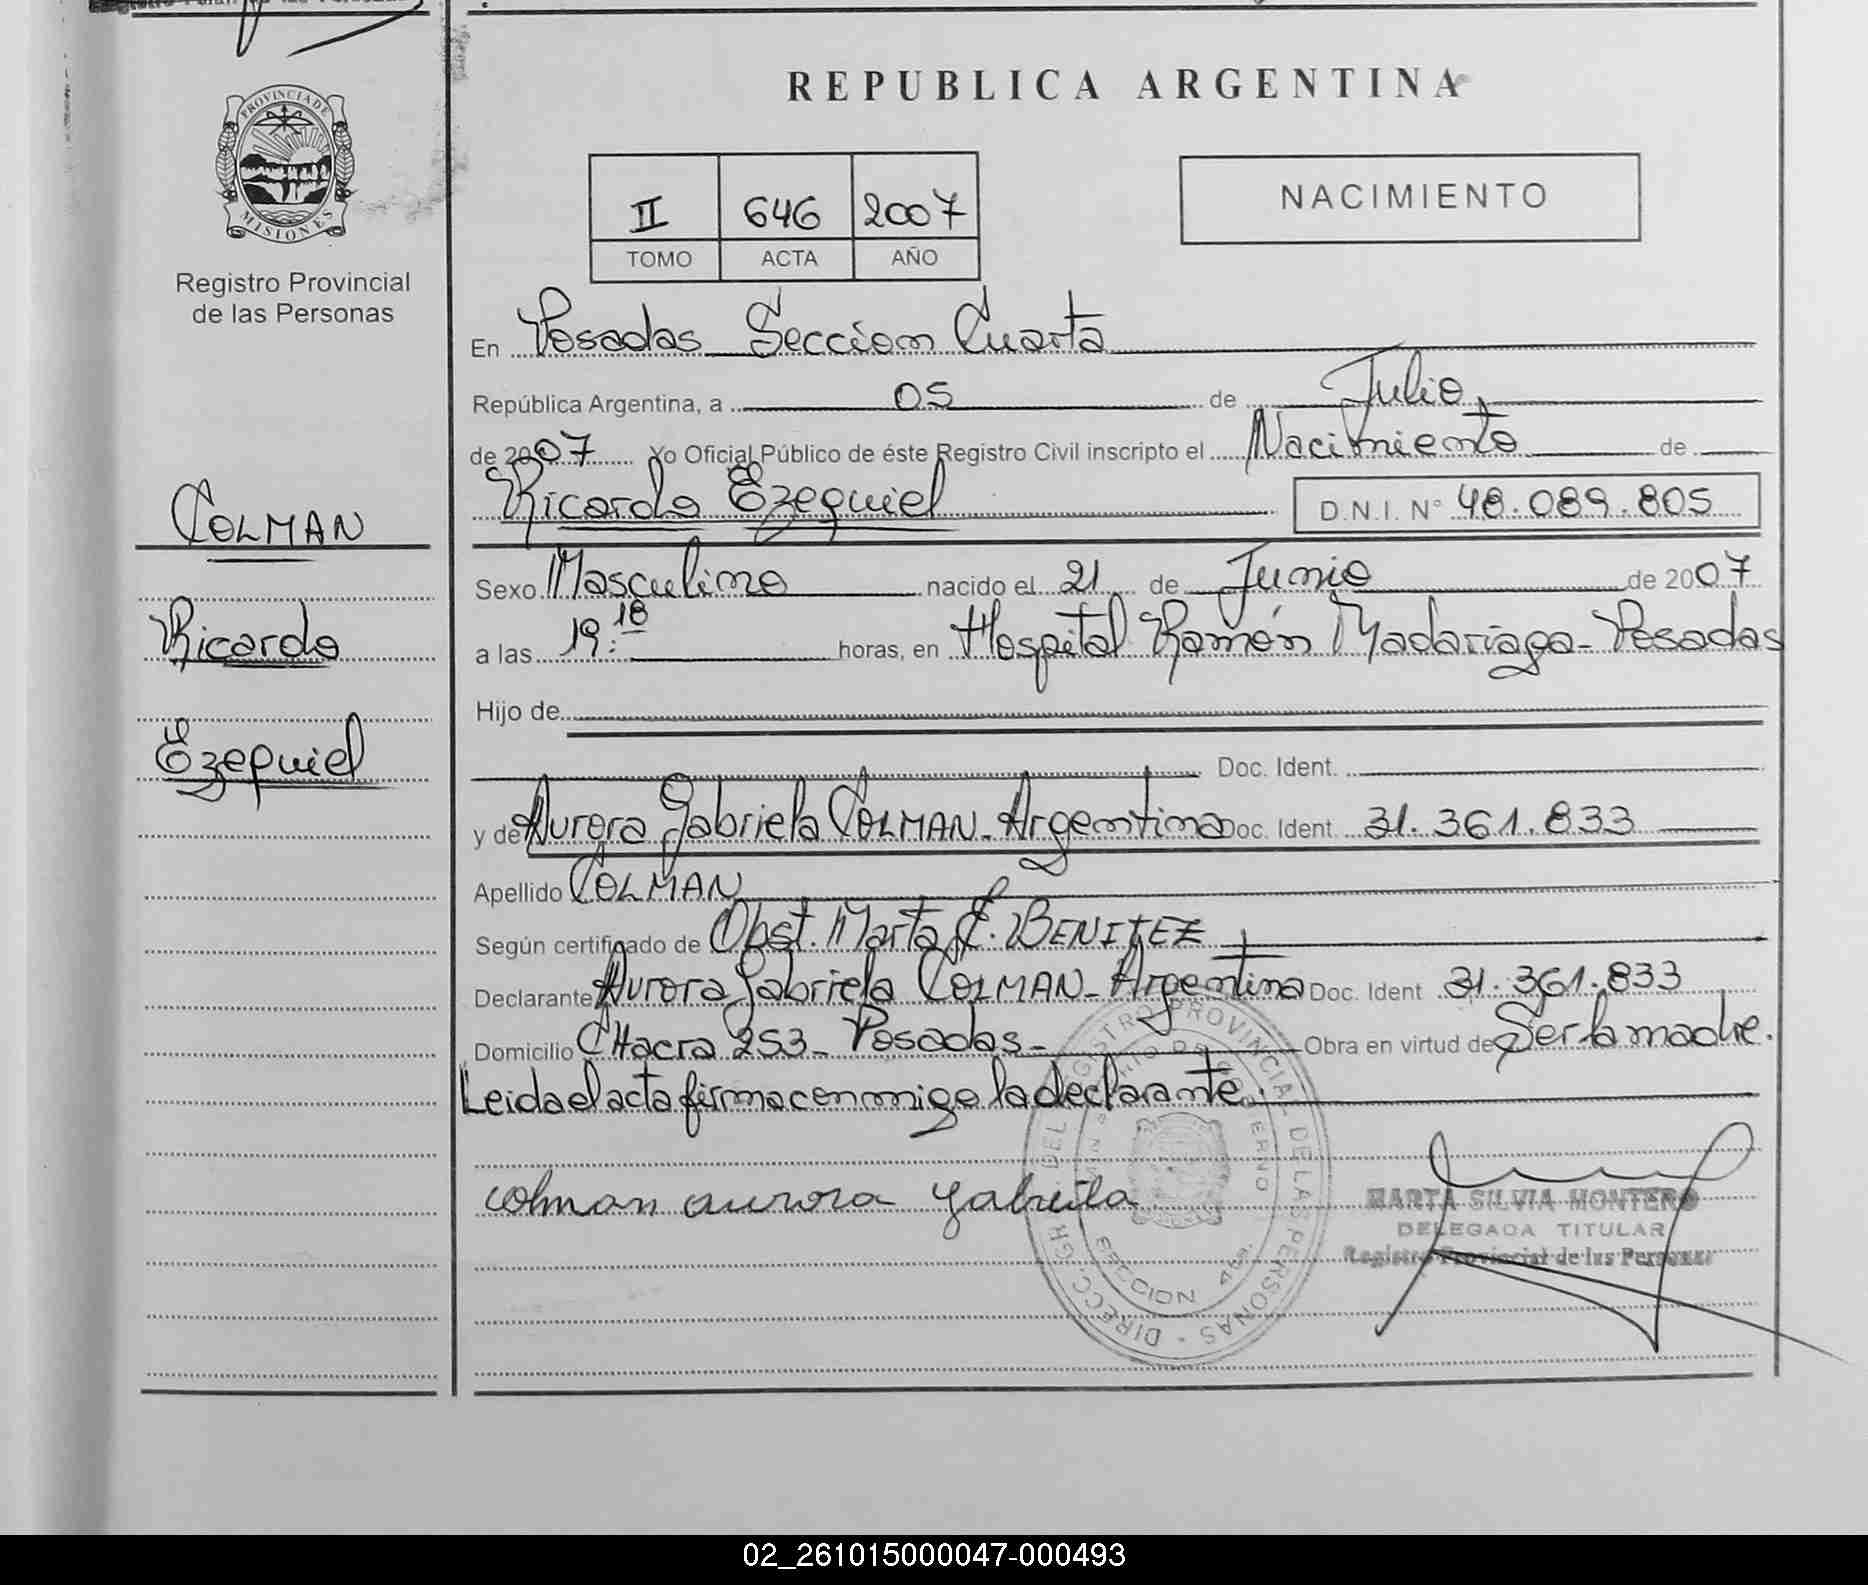 REPUBLICA ARGENTINA
PROVINCIA DE
MISIONES
Registro Provincial
de las Personas
II 646 2007
TOMO ACTA AÑO
NACIMIENTO
COLMAN
Ricardo
Ezequiel
En Posadas Seccion Cuarta
República Argentina, a 05 de Julio
de 2007 Yo Oficial Público de éste Registro Civil inscripto el Nacimiento de
Ricardo Ezequiel D.N.I. N° 48.089.805
Sexo Masculino nacido el 21 de Junio de 2007
a las 19:18 horas, en Hospital Ramón Madariaga - Posadas
Hijo de
Doc. Ident.
y de Aurora Gabriela COLMAN - Argentina Doc. Ident 31.361.833
Apellido COLMAN
Según certificado de Obst. Marta E. BENITEZ
Declarante Aurora Gabriela COLMAN - Argentina Doc. Ident 31.361.833
Domicilio CHacra 253 - Posadas - Obra en virtud de Ser la madre.
Leida el acta firma con migo la declarante.
colman aurora gabriela
MARTA SILVIA MONTERO
DELEGADA TITULAR
Registro Provincial de las Personas
DIRECC. GRL DEL REGISTRO PROVINCIAL DE LAS PERSONAS
SECCION 4ta.
02_261015000047-000493